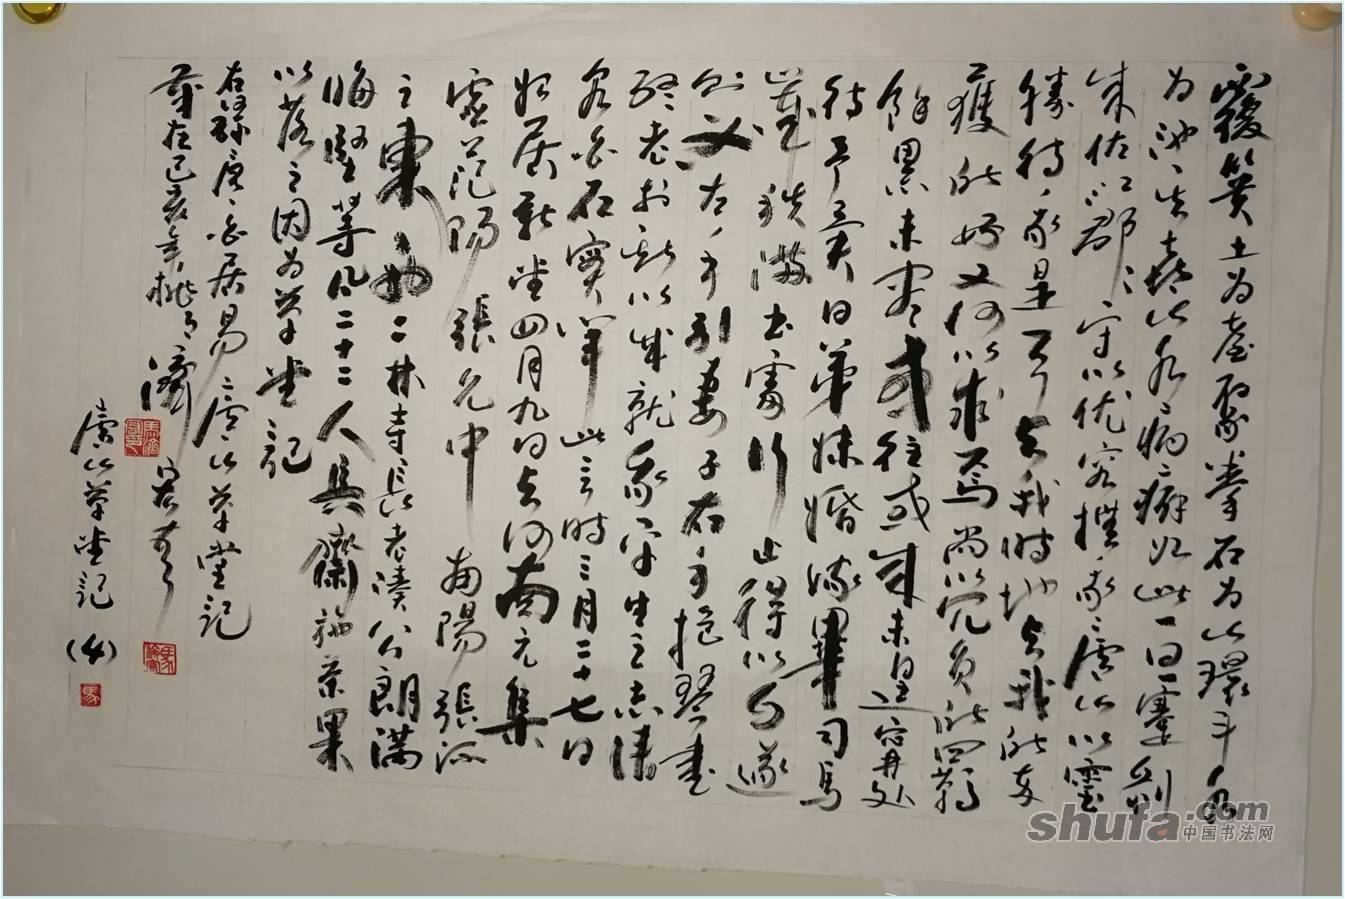 覆簣土为臺聚拳石为山環斗水
为池其喜山水病癖如此一旦蹇剥
来佐江郡郡守以优容撫我廬山以靈
勝待我是天与我時地与我所卒
獲所好又何以求焉尚以冗员所羁
餘累未盡或往或来未遑寧处
待予異日弟妹婚嫁畢司馬
歲秩满出處行止得以自遂
则必左手引妻子右手抱琴書
终老於斯以成就我平生之志清
泉白石實闻此言時三月二十七日
始居新堂四月九日与河南元集
虚范陽張允中南陽張深
之東西二林寺長老凑公朗满
晦堅等凡二十二人具齋施茶果
以落之因为草堂记
右録唐白居易廬山草堂记
歲在己亥年桃月
廬山草堂记(4)
馬
shufa.com
中国书法网